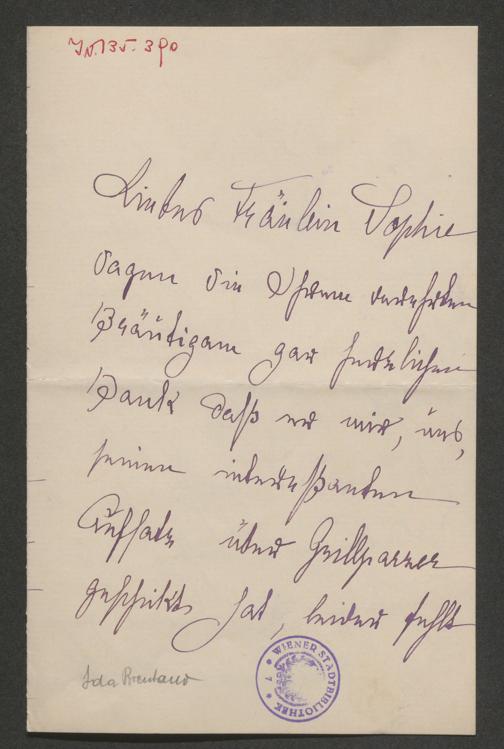 J.N. 135.390
Liebes Fräulein Sophie
Sagen Sie Ihrem verehrten
Bräutigam gar herzlichen
Dank daß er mir, uns,
seinen interessanten
Aufsatz über Grillparzer
geschikt hat, leider fehlt
Ida Brentano
* WIENER STADTBIBLIOTHEK * 7